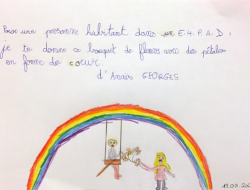 Pour une personne habitant dans un E.H.P.A.D :
je te donne ce bouquet de fleurs avec des pétales
en forme de cœur.
d'Anaïs GEORGES